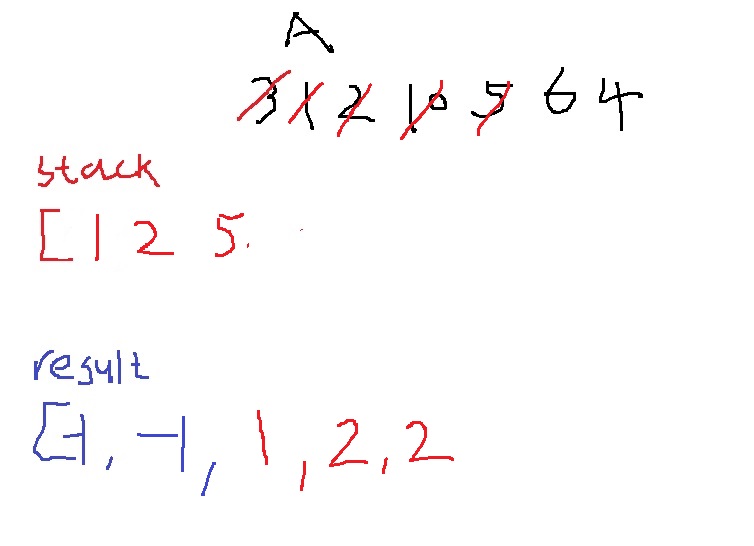 A
3 1 2 10 5 6 4
stack
[ 1 2 5.
result
[-1, -1, 1, 2, 2